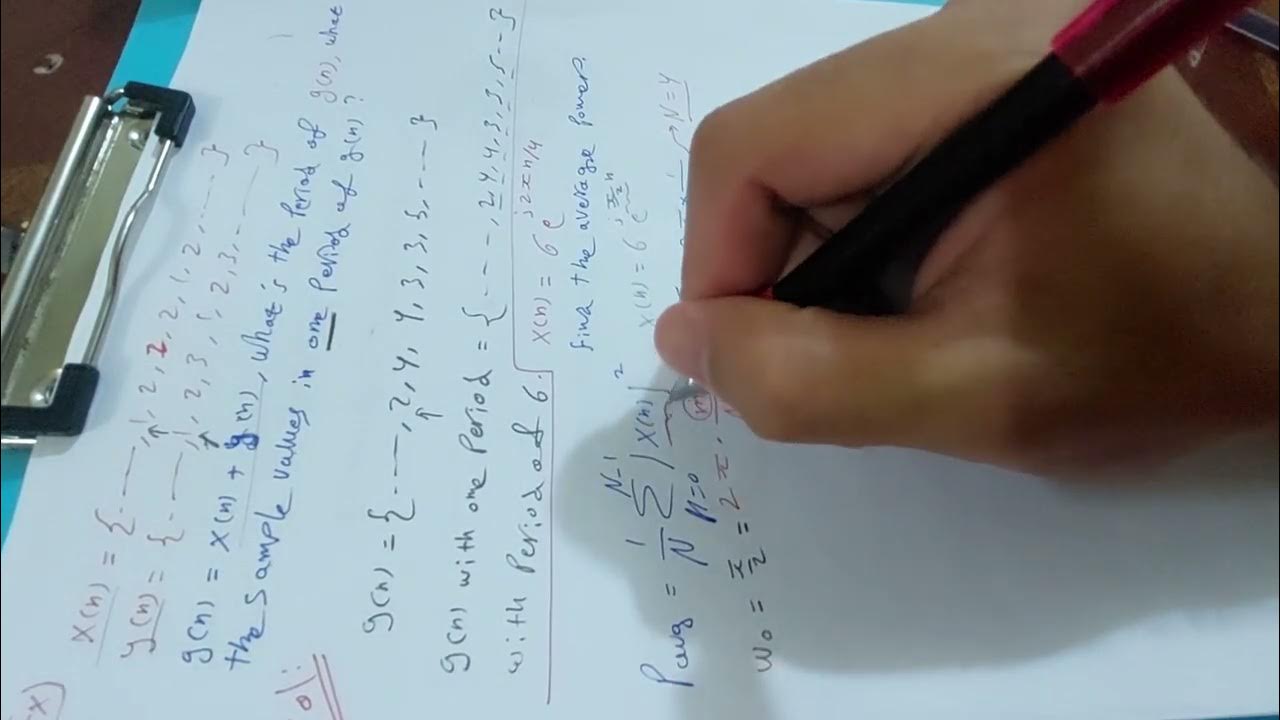 x(n) = {----, 1, 2, 2, 2, 1, 2, -----}
y(n) = {----, 1, 2, 3, 1, 2, 3, -----}
g(n) = x(n) + y(n), what's the Period of g(n), what
the sample values in one Period of g(n)?
g(n) = {----, 2, 4, 4, 3, 3, 5, ---}
g(n) with one Period = {----, 2, 4, 4, 3, 3, 5, --}
with Period of 6.
x(n) = 6 e^{j2πn/4}
find the average Power?
x(n) = 6 e^{j π/2 n}
N=4
Pavg = 1/N Σ_{n=0}^{N-1} |x(n)|²
ω₀ = π/2 = 2π · m